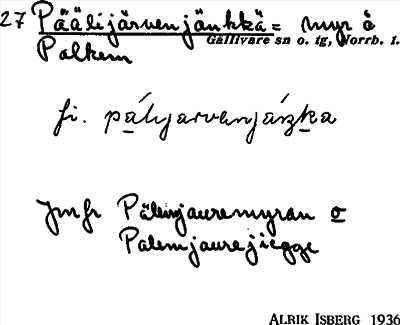 27 Päälijärvenjänkkä = myr å
Gällivare sn o. tg, Norrb. l.
Palkem
fi. pälyarvenjáẓka
Jmfr Pälemjauremyran o
Palemjaurejiegge
ALRIK ISBERG 1936